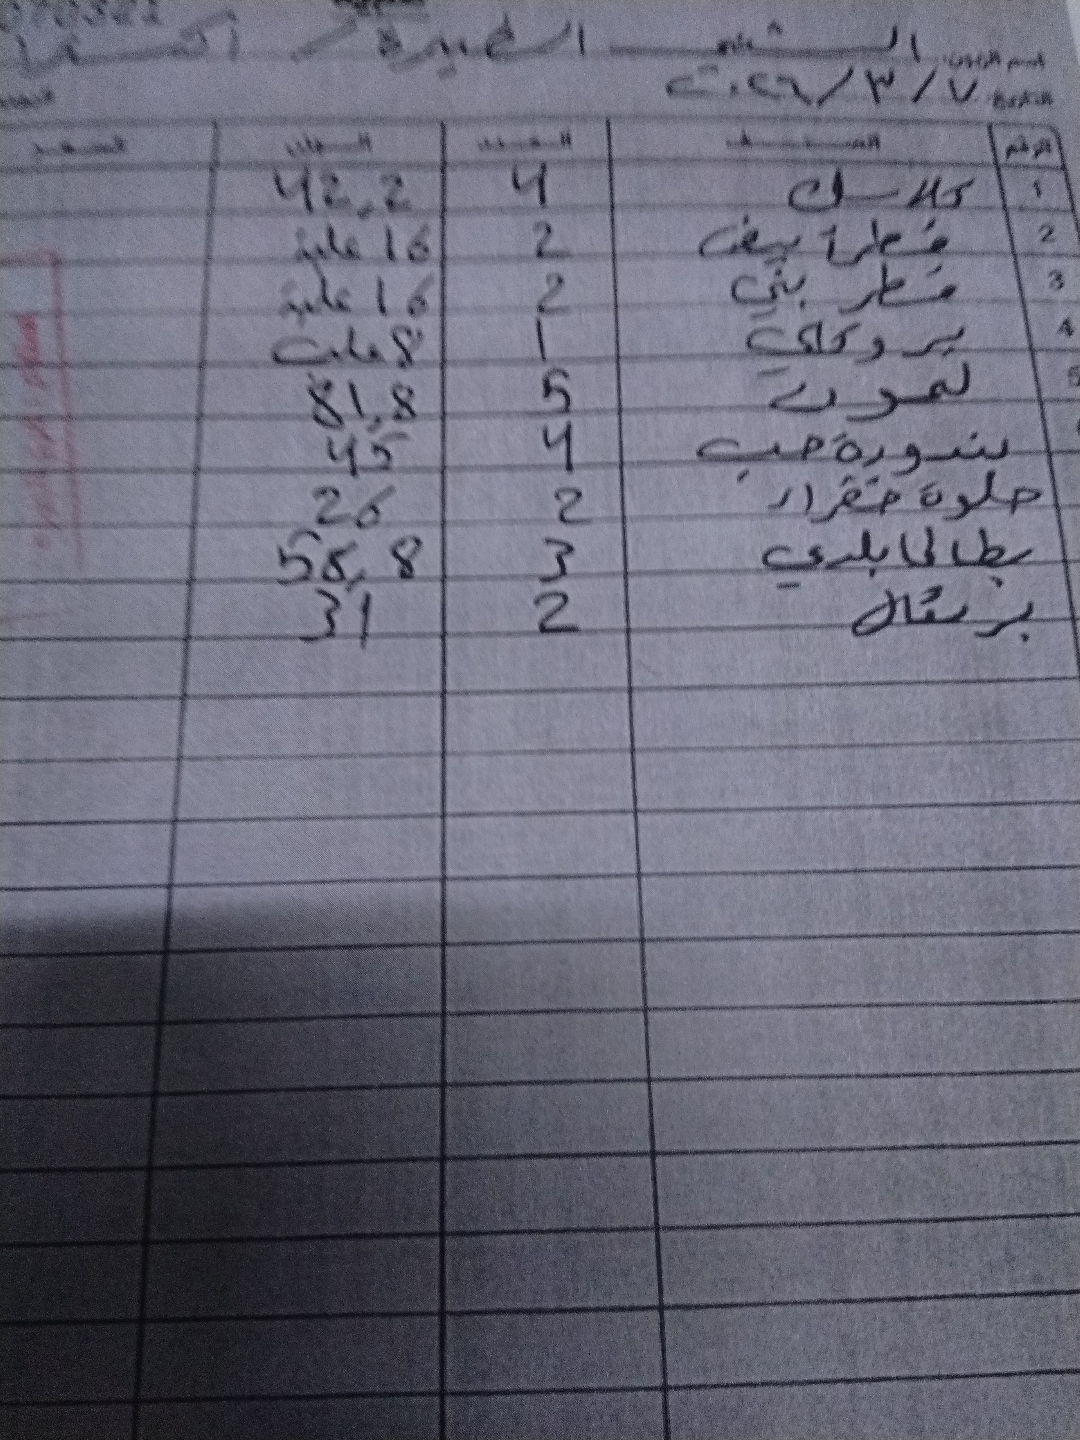 اسم الزبون: الشام الطيبة /
التاريخ: ٢٠٢٦/٣/٧
الرقم الصنف العدد الوزن السعر
1 كلاسك 4 42.2
2 فطر ابيض 2 16 علبة
3 فطر بني 2 16 علبة
4 بروكلي 1 8 علب
5 ليمون 5 81.8
بندورة حب 4 45
حلوة حمراء 2 26
بطاطا بلدي 3 58.8
برتقال 2 31